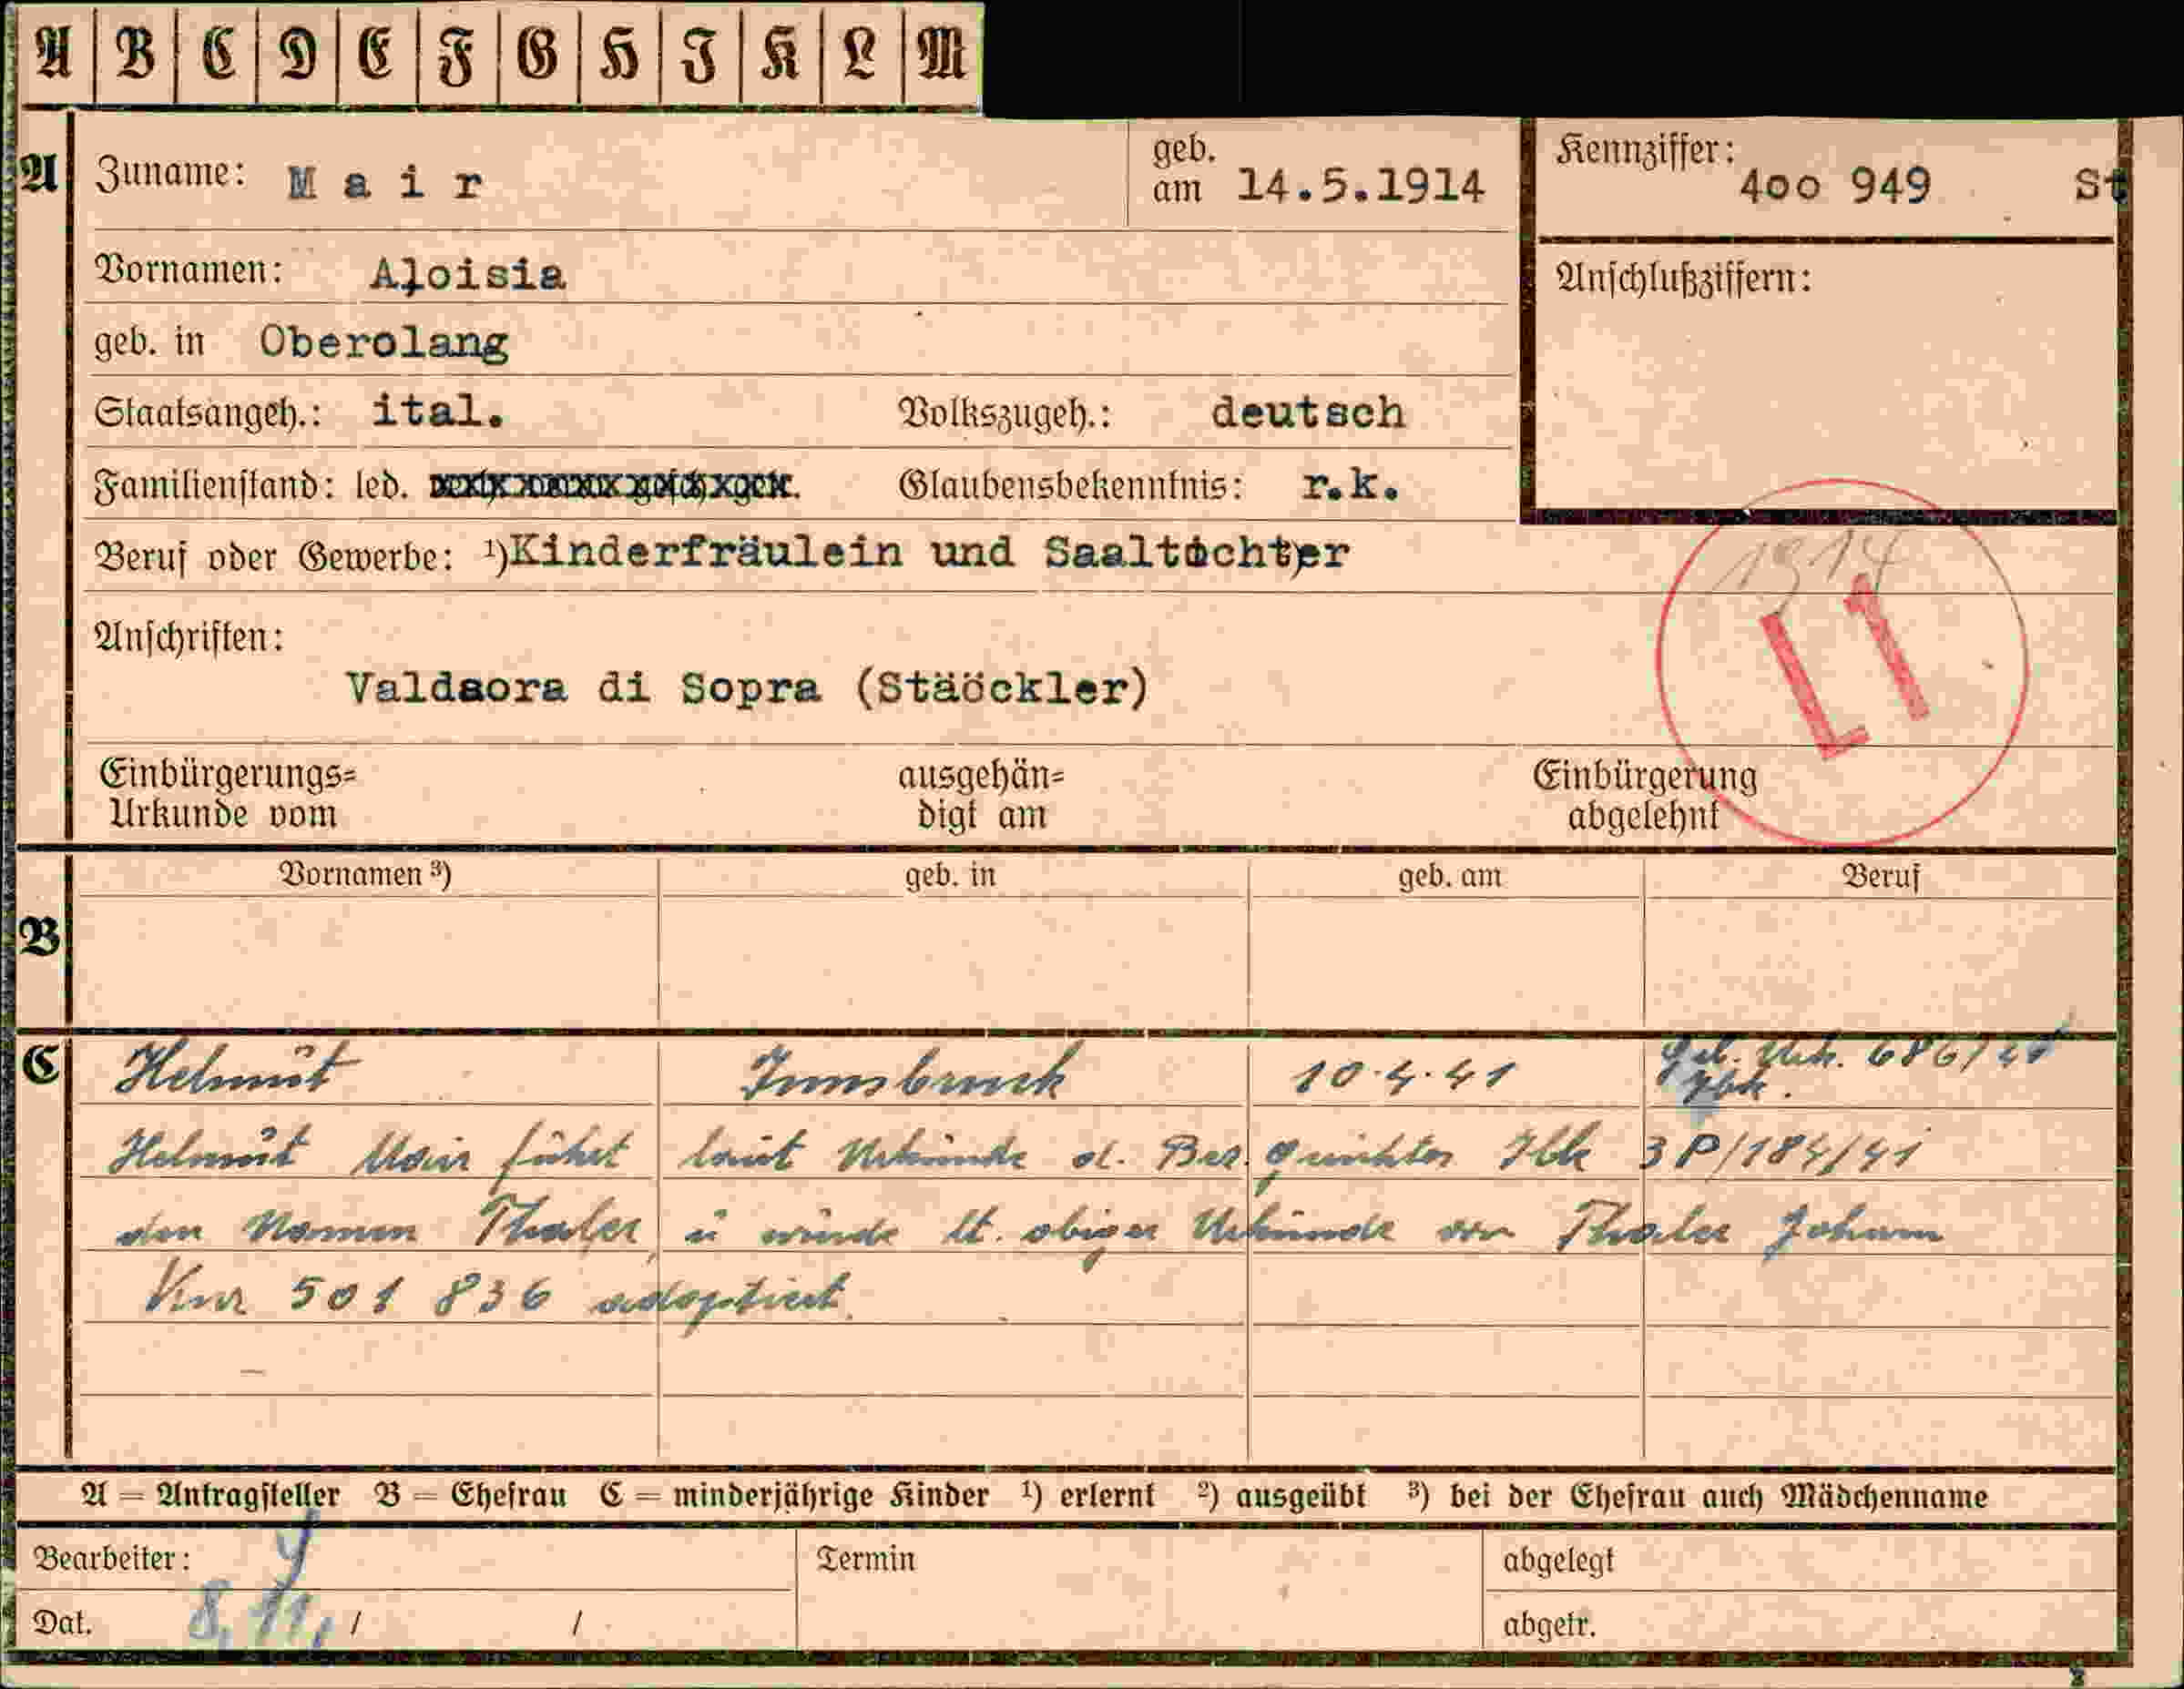 A B C D E F G H I K L M
A Zuname: Mair geb. am 14.5.1914 Kennziffer: 4oo 949 St
Vornamen: Aloisia Anschlußziffern:
geb. in Oberolang
Staatsangeh.: ital. Volkszugeh.: deutsch
Familienstand: led. Glaubensbekenntnis: r.k.
Beruf oder Gewerbe: ¹)Kinderfräulein und Saaltochter
1914
Anschriften:
Valdaora di Sopra (Stäöckler)
Einbürgerungs=
Urkunde vom
ausgehän=
digt am
Einbürgerung
abgelehnt
Vornamen ³) geb. in geb. am Beruf
B
C Helmut Innsbruck 10.4.41 Geb. Urk. 686/41
Ibk.
Helmut Mair führt laut Urkunde d. Bez. gerichtes Ibk 3P/184/41
den Namen Thaler, u wurde lt. obiger Urkunde von Thaler Johann
Knr 501 836 adoptiert.
A = Antragsteller B = Ehefrau C = minderjährige Kinder ¹) erlernt ²) ausgeübt ³) bei der Ehefrau auch Mädchenname
Bearbeiter: Termin abgelegt
Dat. 8. 11. / / abgetr.